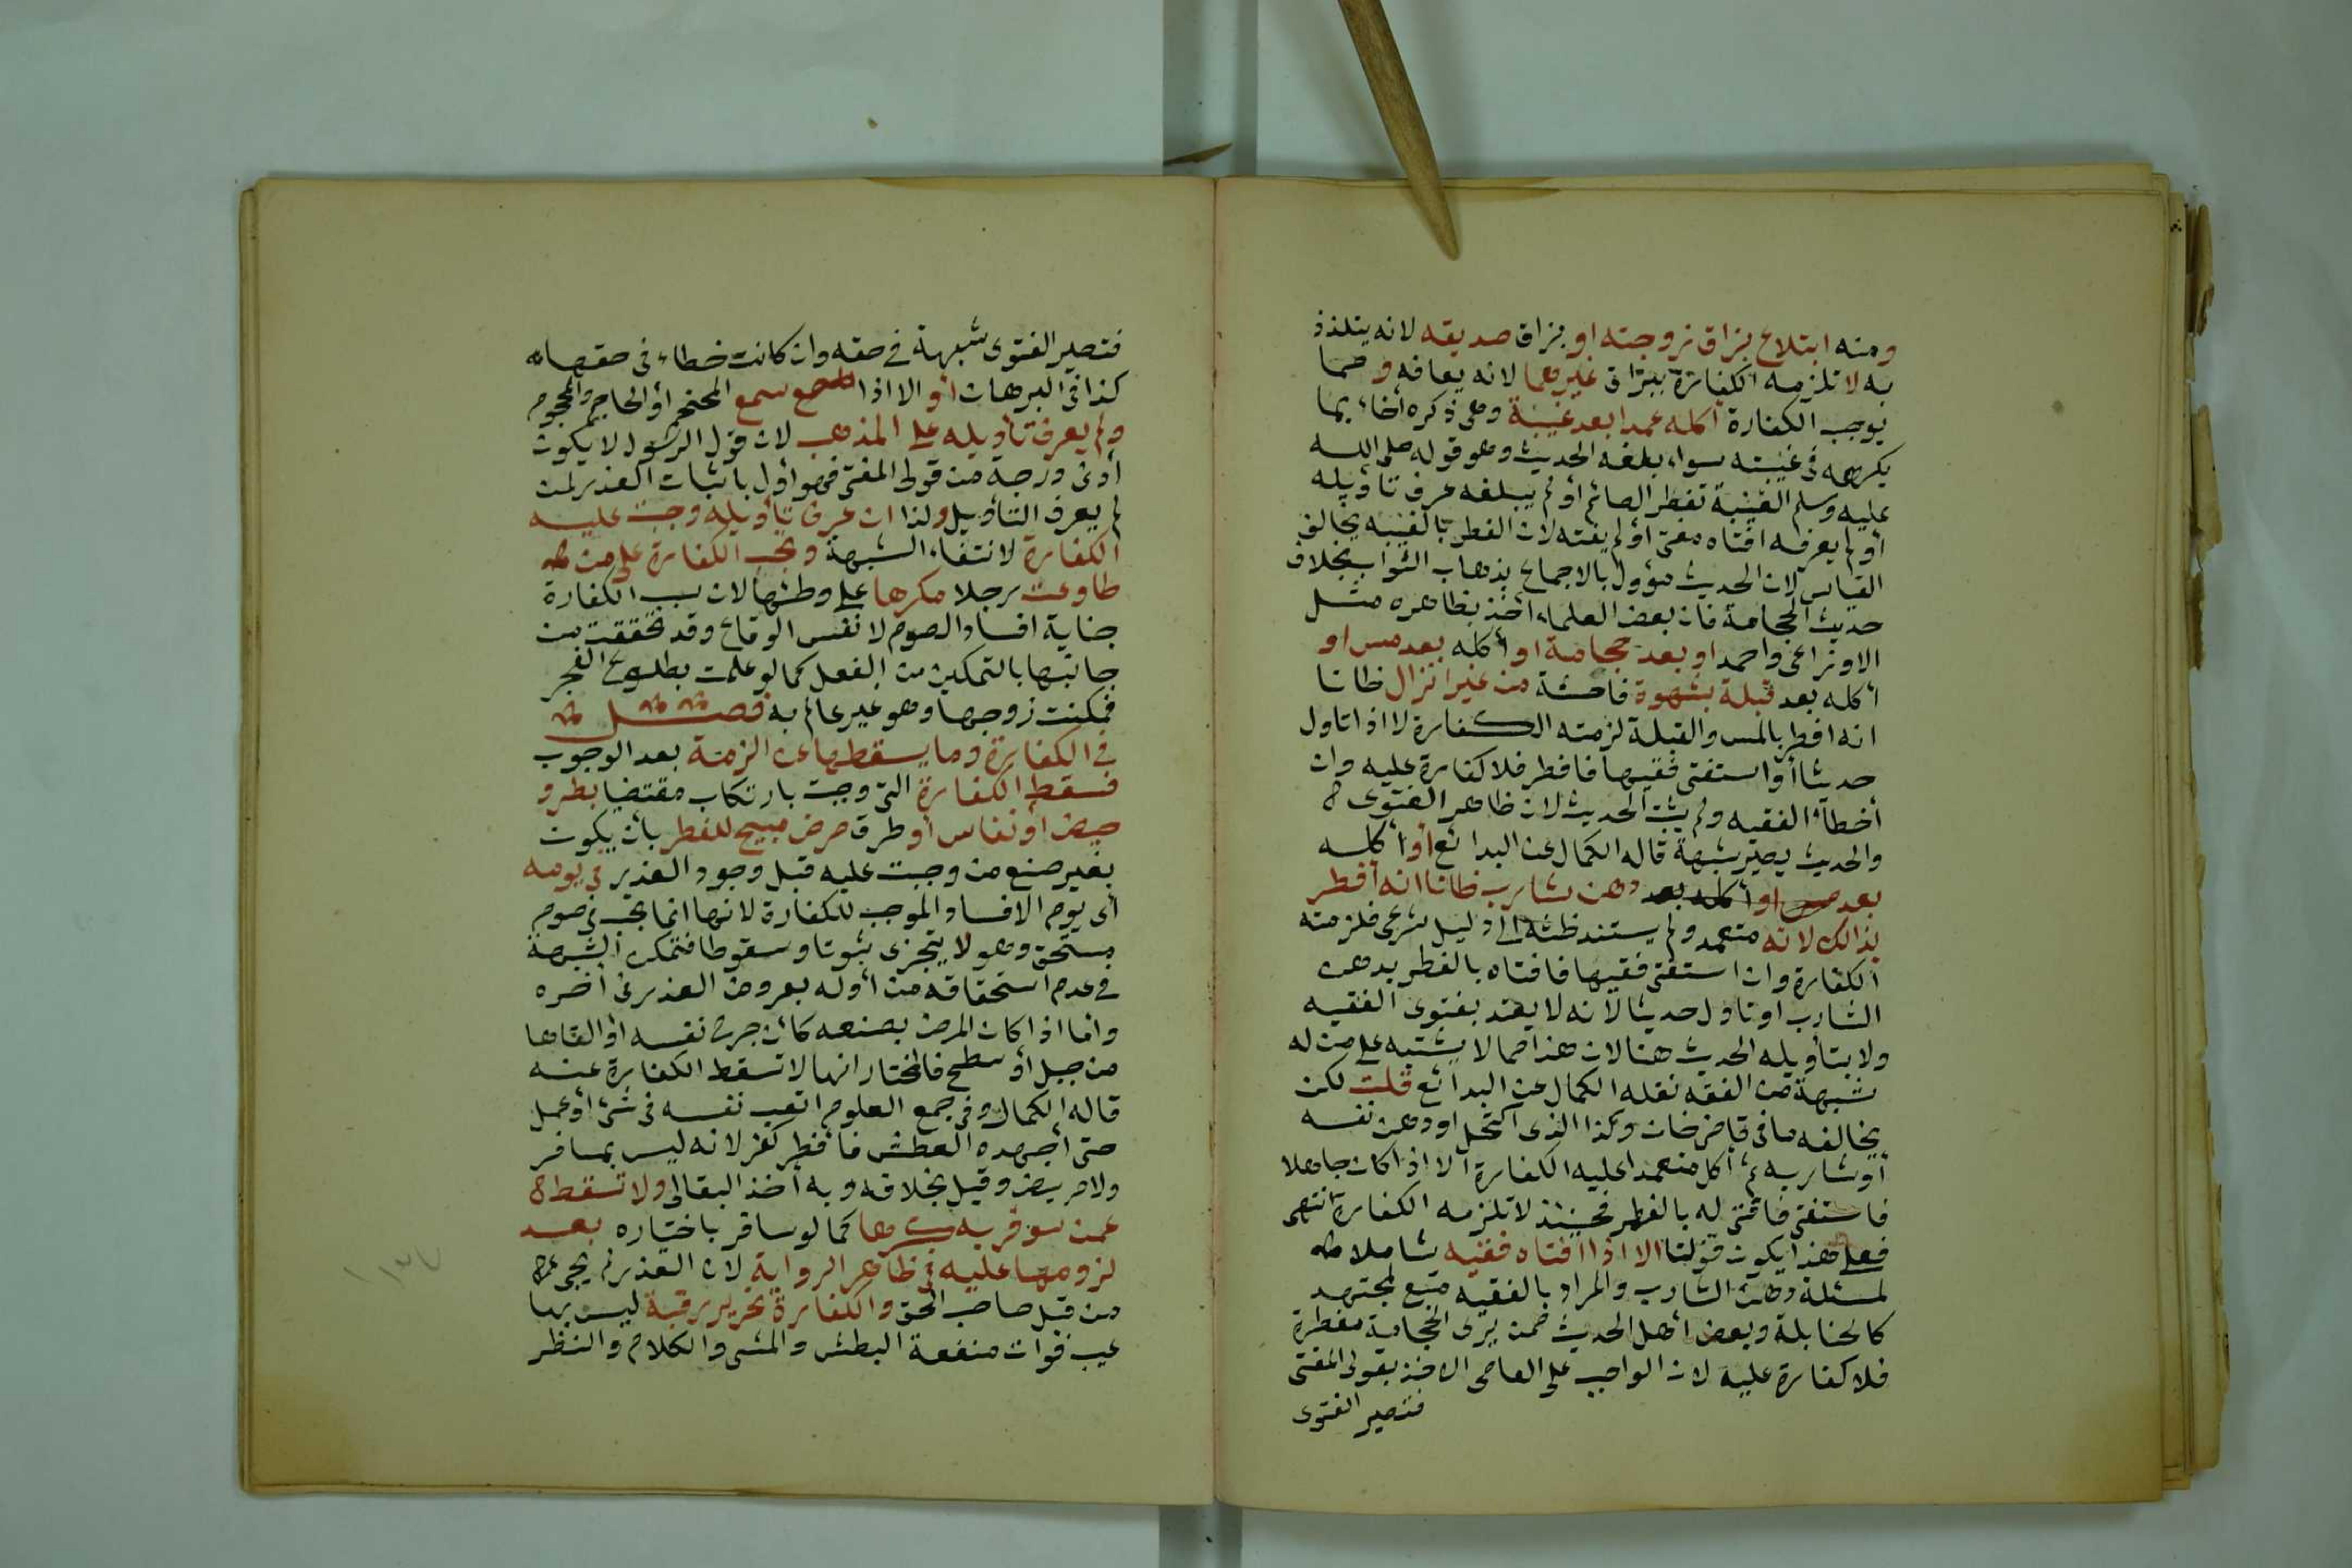 ومنه ابتلاع بزاق زوجته او بزاق صديقه لانه يتلذذ
به لا تلزمه الكفارة ببزاق غيرهما لانه يعافه ومما
يوجب الكفارة أكله عمدا بعد غيبة وهى ذكره أخاه بما
يكرهه فى غيبته سواء بلغه الحديث وهو قوله صلى الله
عليه وسلم الغيبة تفطر الصائم أو لم يبلغه عرف تاويله
أو لم يعرفه افتاه مفتى أو لم يفته لان الفطر بالغيبة يخالف
القياس لان الحديث مؤول بالاجماع بذهاب الثواب بخلاف
حديث الحجامة فان بعض العلماء أخذ بظاهره مثل
الاوزاعى واحمد او بعد حجامة او أكله بعد مس او
أكله بعد قبلة بشهوة فاحشة من غير انزال ظانا
انه افطر بالمس والقبلة لزمته الكفارة لا اذا تاول
حديثا أو استفتى فقيها فافطر فلا كفارة عليه وان
أخطأ الفقيه ولم يثبت الحديث لان ظاهر الفتوى
والحديث يصير شبهة قاله الكمال عن البدائع أو أكله
بعد دهن شارب ظانا انه أفطر
بذالك لانه متعمد ولم يستند ظنه الى دليل شرعى فلزمته
الكفارة وان استفتى فقيها فافتاه بالفطر بدهن
الشارب او تاول حديثا لانه لا يعتد بفتوى الفقيه
ولا بتأويله الحديث هنا لان هذا مما لا يشتبه على من له
شبهة من الفقه نقله الكمال عن البدائع قلت لكن
يخالفه ما فى قاضى خان وكذا الذى اكتحل او دهن نفسه
أو شاربه ثم أكل متعمدا عليه الكفارة الا اذا كان جاهلا
فاستفتى فافتى له بالفطر فحينئذ لا تلزمه الكفارة انتهى
فعلى هذا يكون قولنا الا اذا افتاه فقيه شاملا
لمسئلة دهن الشارب والمراد بالفقيه متبع لمجتهد
كالحنابلة وبعض أهل الحديث ممن يرى الحجامة مفطرة
فلا كفارة عليه لان الواجب على العامى الاخذ بقول المفتى
فتصير الفتوى
فتصير الفتوى شبهة فى حقه وان كانت خطاء فى حقها
كذا فى البرهان أو الا اذا سمع المحتجم أو الحاجم والمحجوم
ولم يعرف تأويله على المذهب لان قول الرسول لا يكون
أدنى درجة من قول المفتى فهو أول باثبات العذر لمن
لم يعرف التأويل ولذا ان عرف تأويله وجبت عليه
الكفارة لانتفاء الشبهة وتجب الكفارة على من
طاوعت رجلا مكرها على وطئها لان سبب الكفارة
جناية افساد الصوم لا نفس الوقاع وقد تحققت من
جانبها بالتمكين من الفعل كما لو علمت بطلوع الفجر
فمكنت زوجها وهو غير عالم به فصل
فى الكفارة وما يسقطها عن الزمة بعد الوجوب
فسقط الكفارة التى وجبت بارتكاب مقتضيا بطرو
حيض أو نفاس أو طرق مرض مبيح للفطر بأن يكون
بغير صنع من وجبت عليه قبل وجود العذر فى يومه
أى يوم الافساد الموجب للكفارة لانها انما تجب فى صوم
مستحق وهو لا يتجزى ثبوتا وسقوطا فتمكن الشبهة
فى عدم استحقاقه من أوله بعروض العذر فى أخره
واما اذا كان المرض بصنعه كأن جرح نفسه أو القاها
من جبل أو سطح فالمختار انها لا تسقط الكفارة عنه
قاله الكمال وفى جمع العلوم اتعب نفسه فى شئ أو عمل
حتى أجهده العطش فأفطر كفر لانه ليس بمسافر
ولا مريض وقيل بخلافه وبه أخذ البقالى ولا تسقط
عمن سوفر به كرها كما لو سافر باختياره بعد
لزومها عليه فى ظاهر الرواية لان العذر لم يجئ
من قبل صاحب الحق والكفارة تحرير رقبة ليس بها
عيب فوات منفعة البطش والمشى والكلام والنظر